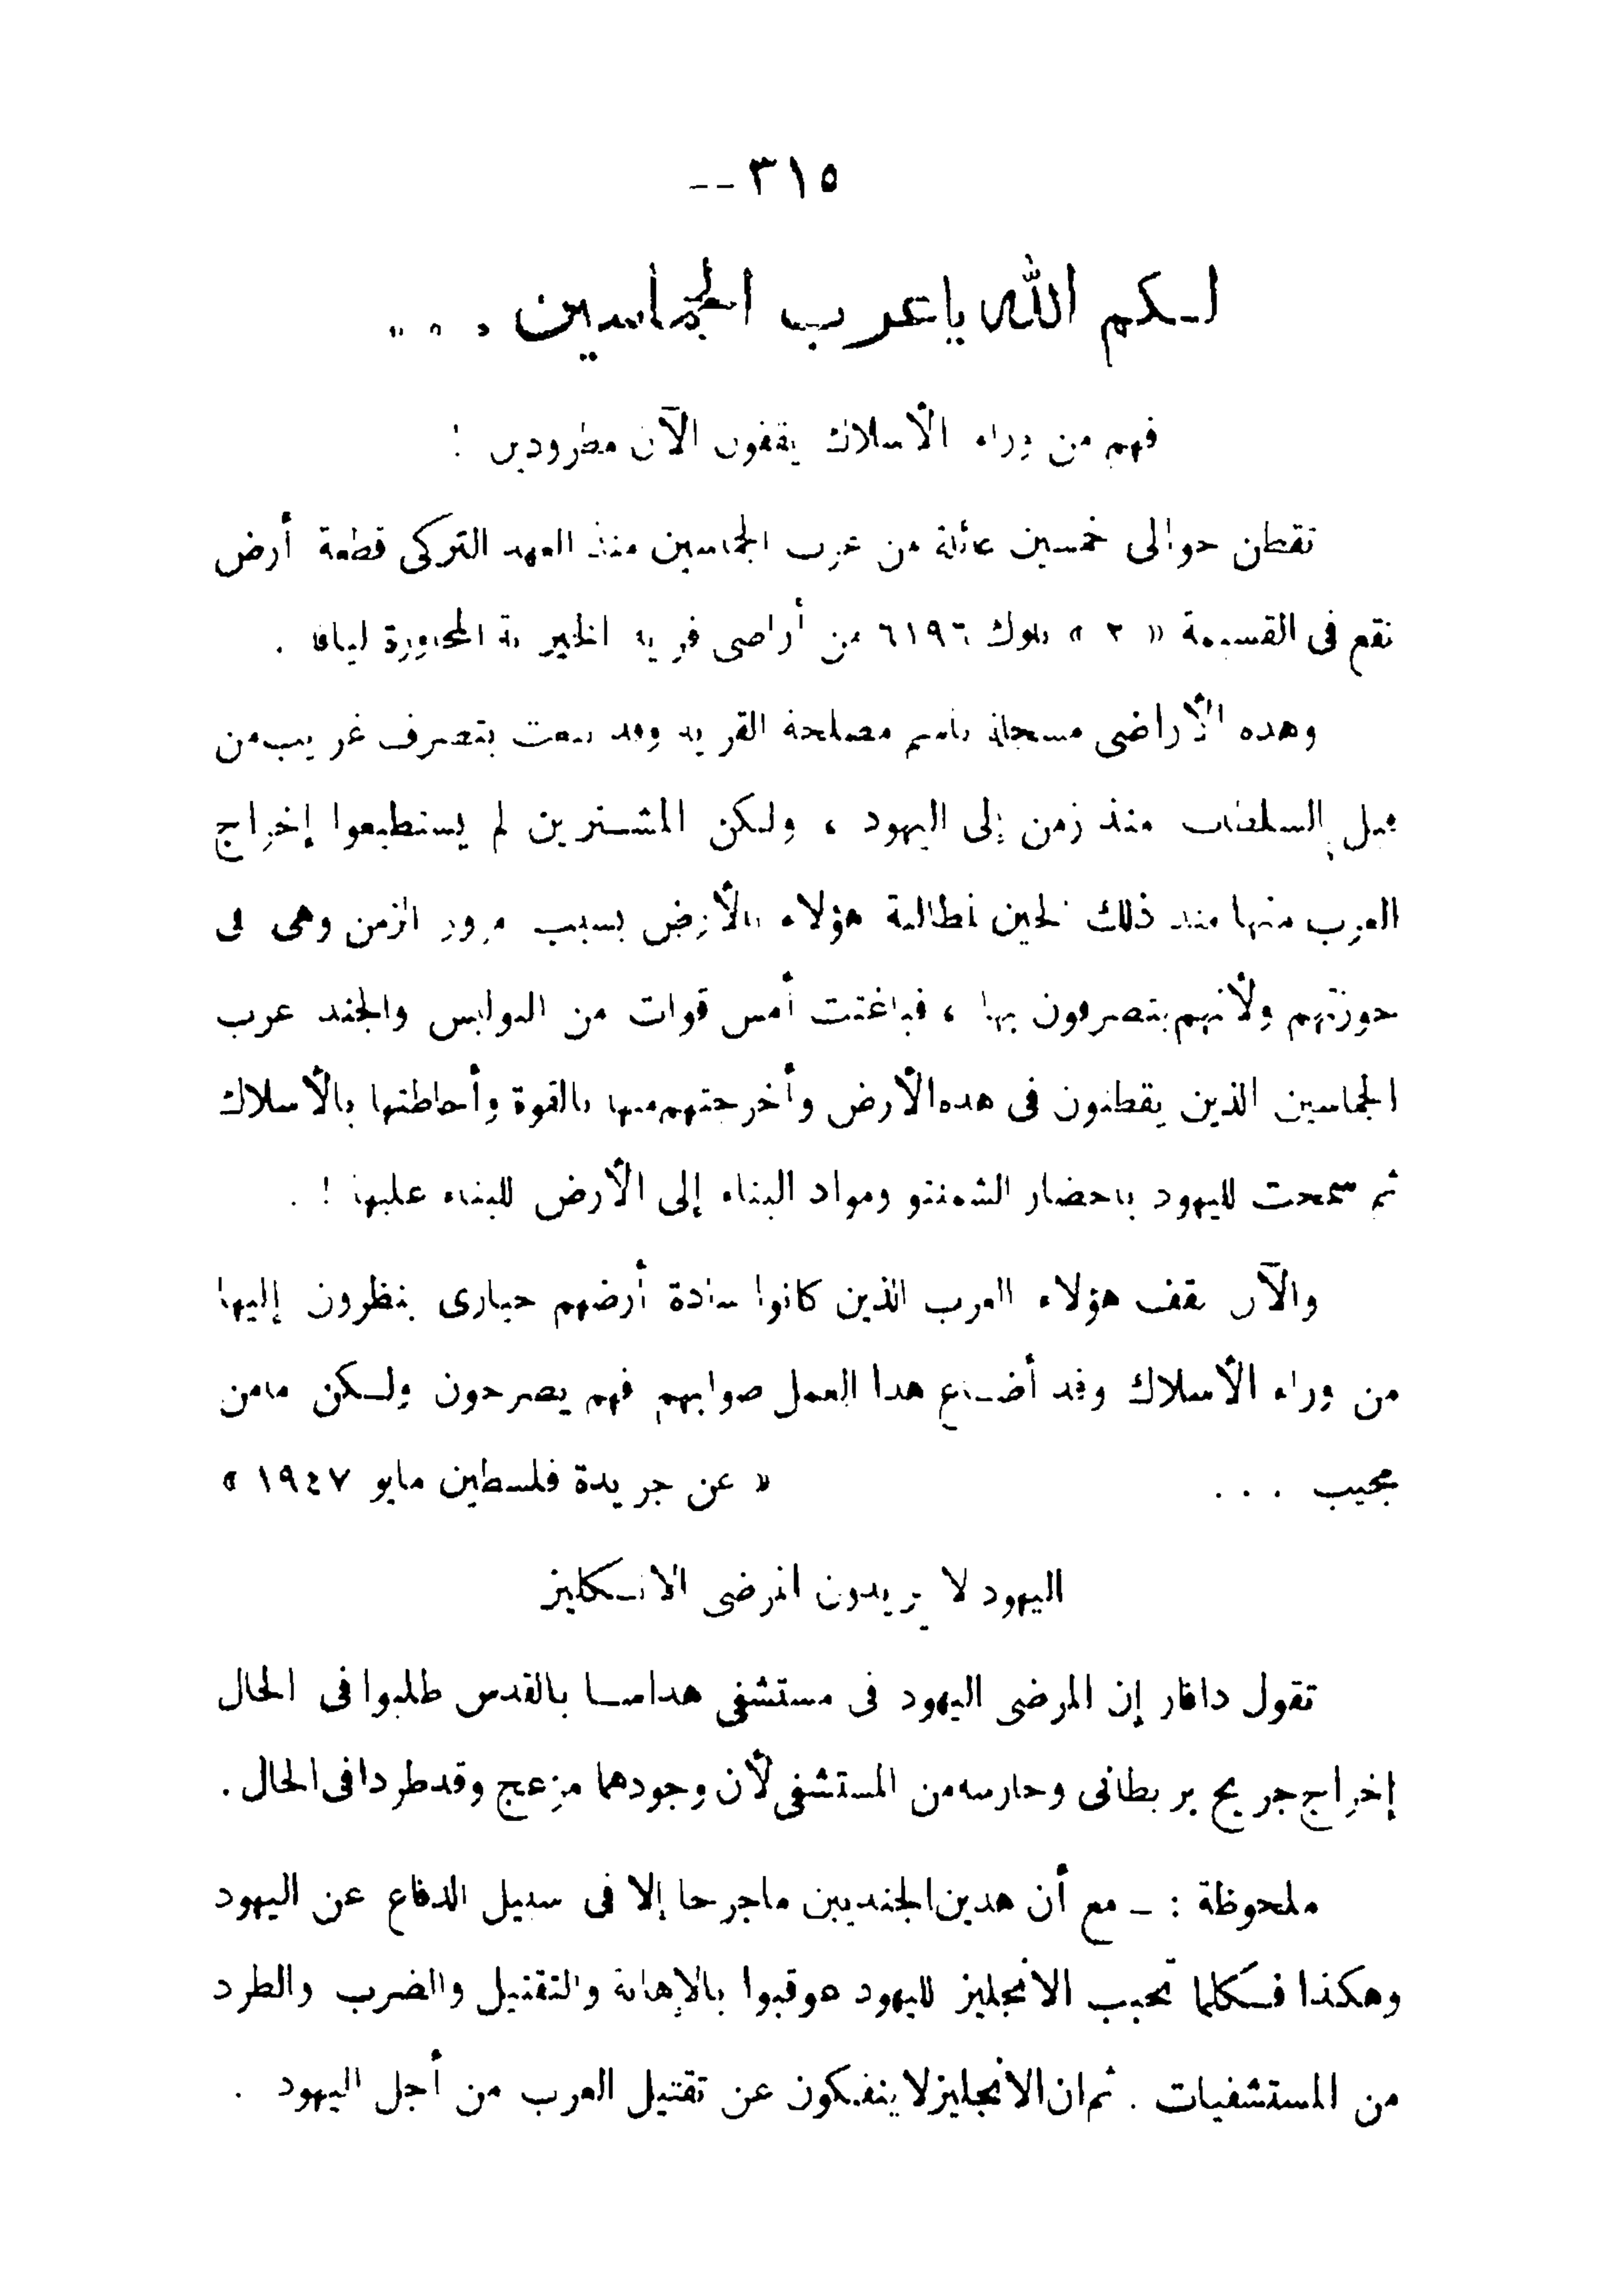 ٣١٥ --
لكم الله يا عرب الجماسين . . .
فهم من وراء الأسلاك يقفون الآن مطرودين !
تقطن حوالى خمسين عائلة من عرب الجماسين منذ العهد التركى قطعة أرض
تقع فى القسيمة « ٢ » بلوك ٦١٩٦ من أراضى قرية الخيرية المجاورة ليافا .
وهذه الأراضى مسجلة باسم مصلحة القرية وقد بيعت بتصرف غريب من
قبل السلطات منذ زمن إلى اليهود ، ولكن المشترين لم يستطيعوا إخراج
العرب منها منذ ذلك لحين لمطالبة هؤلاء بالأرض بسبب مرور الزمن وهى فى
حوزتهم ولأنهم يتصرفون بها ، فباغتت أمس قوات من البوليس والجند عرب
الجماسين الذين يقطنون فى هذه الأرض وأخرجتهم منها بالقوة وأحاطتها بالأسلاك
ثم سمحت لليهود باحضار الشمنتو ومواد البناء إلى الأرض للبناء عليها ! .
والآن يقف هؤلاء العرب الذين كانوا سادة أرضهم حيارى ينظرون إليها
من وراء الأسلاك وقد أضاع هذا العمل صوابهم فهم يصرحون ولكن مامن
مجيب . . . « عن جريدة فلسطين مايو ١٩٤٧ »
اليهود لا يريدون المرضى الانكليز
تقول دافار إن المرضى اليهود فى مستشفى هداسا بالقدس طلبوا فى الحال
إخراج جريح بريطانى وحارسه من المستشفى لأن وجودهما مزعج وقد طردا فى الحال .
ملحوظة : ــ مع أن هذين الجنديين ماجرحا إلا فى سبيل الدفاع عن اليهود
وهكذا فكلما تحبب الانجليز لليهود عوقبوا بالإهانة والتقتيل والضرب والطرد
من المستشفيات . ثم ان الانجليز لا ينفكون عن تقتيل العرب من أجل اليهود .